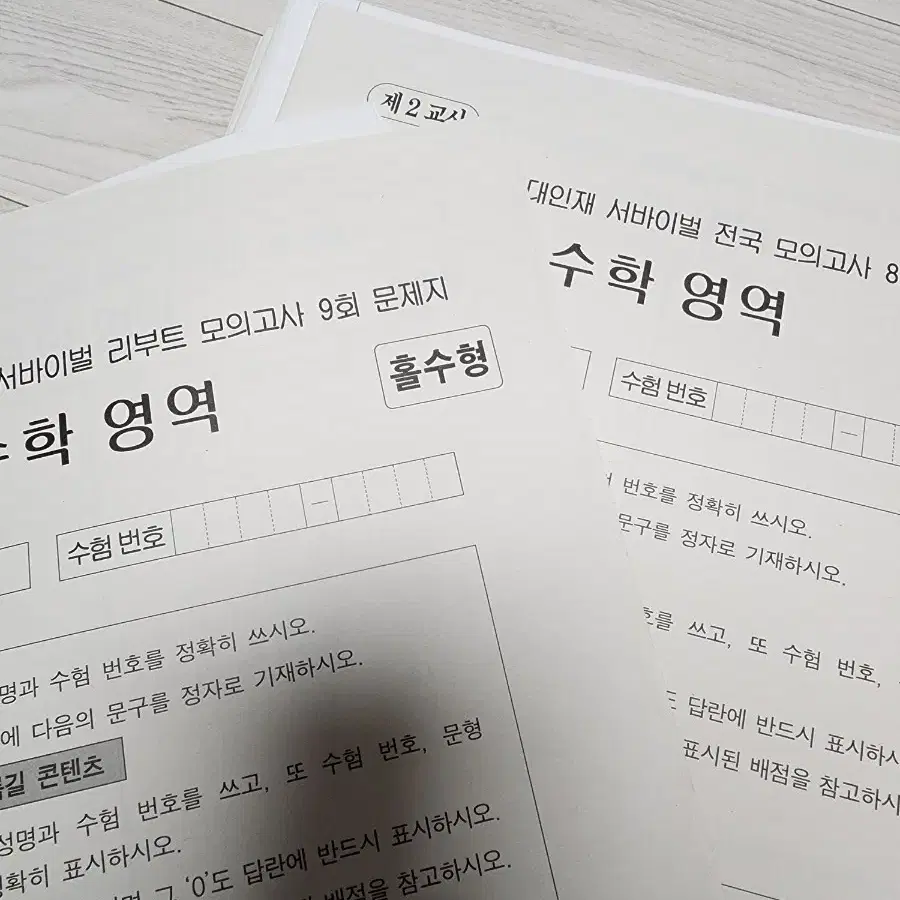 제 2 교시
대인재 서바이벌 전국 모의고사 8
수학 영역
수험 번호
번호를 정확히 쓰시오.
문구를 정자로 기재하시오.
쓰고, 또 수험 번호,
답란에 반드시 표시하시
표시된 배점을 참고하시
서바이벌 리부트 모의고사 9회 문제지
홀수형
수학 영역
수험 번호
성명과 수험 번호를 정확히 쓰시오.
에 다음의 문구를 정자로 기재하시오.
콘텐츠
성명과 수험 번호를 쓰고, 또 수험 번호, 문형
정확히 표시하시오.
그 '0'도 답란에 반드시 표시하시오.
배점을 참고하시오.